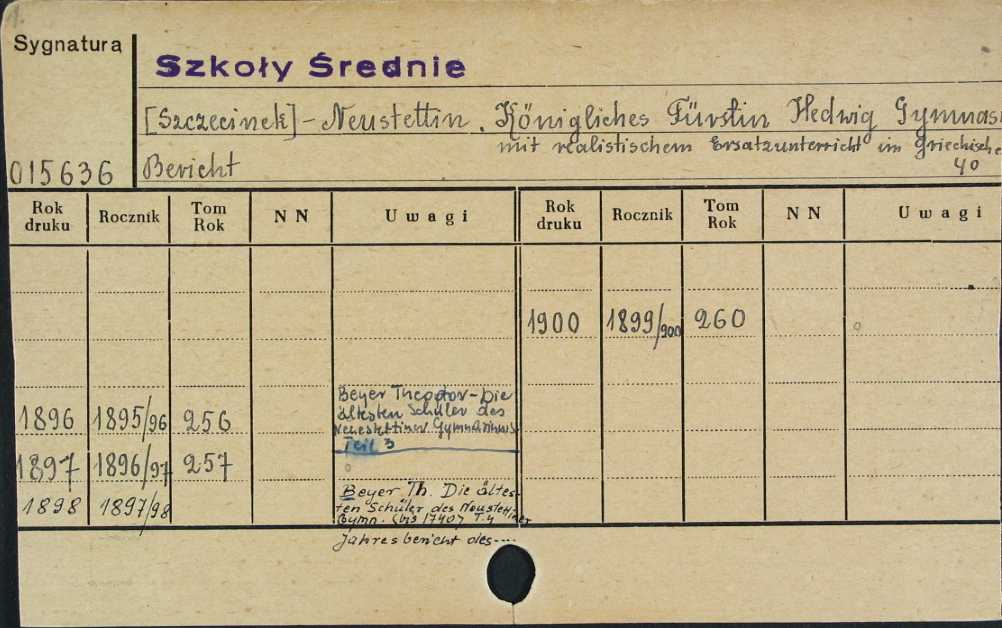 Sygnatura
Szkoły Średnie
[Szczecinek] - Neustettin. Königliches Fürstin Hedwig Gymnas
mit realistischem Ersatzunterricht im Griechische
015636 Bericht 40
Rok druku Rocznik Tom Rok NN Uwagi Rok druku Rocznik Tom Rok NN Uwagi
1900 1899/900 260
Beyer Theodor - Die
ältesten Schüler des
1896 1895/96 256 Neuestettiner Gymnasiums
Teil 3
1897 1896/97 257
Beyer Th. Die ältes-
1898 1897/98 ten Schüler des Neustettiner
Gymn. (bis 1740) T. 4
Jahresbericht des ----